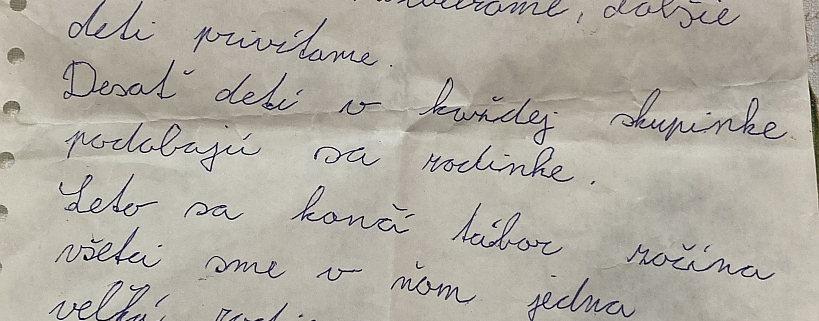 ďalšie
deti privítame.
Desať detí v každej skupinke
podobajú sa rodinke.
Leto sa končí tábor začína
všetci sme v ňom jedna
veľká